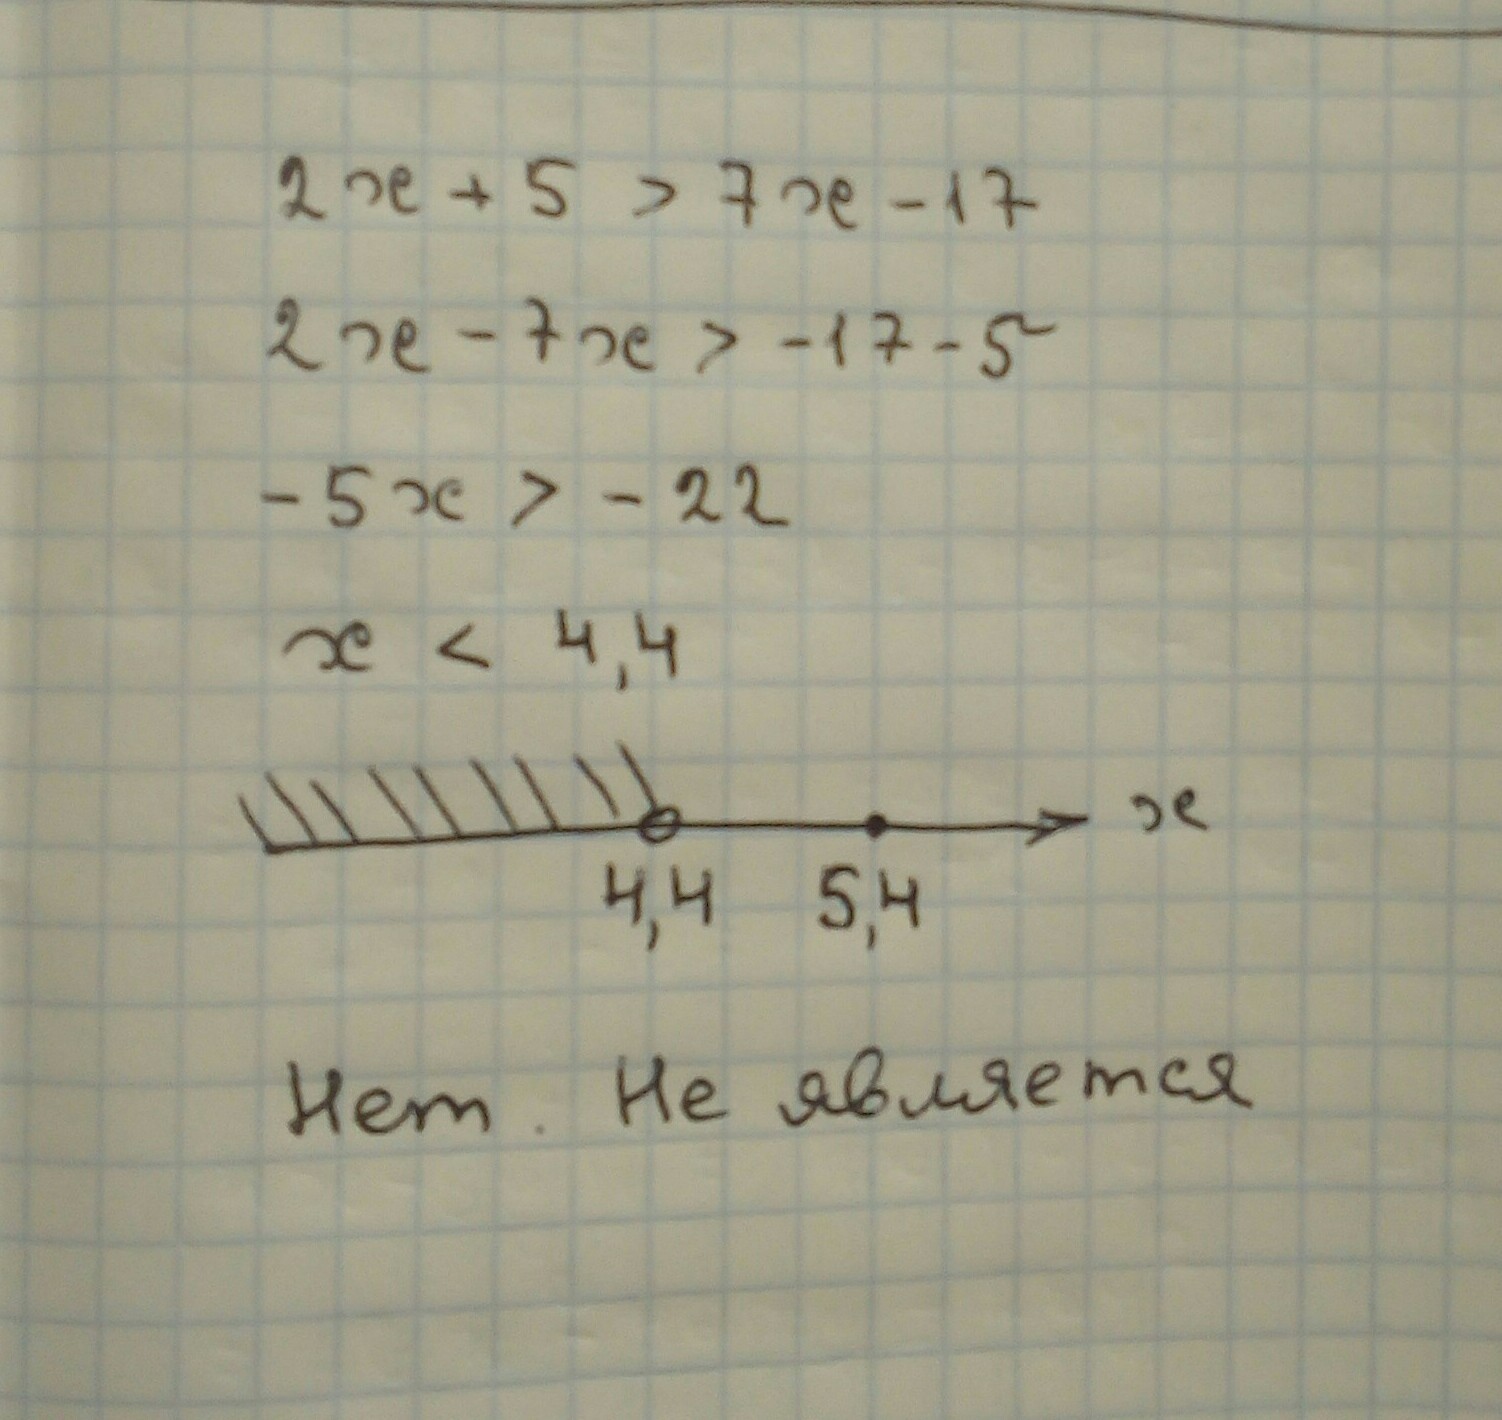 2x + 5 > 7x - 17
2x - 7x > -17 - 5
-5x > -22
x < 4,4
x
4,4 5,4
Нет. Не является